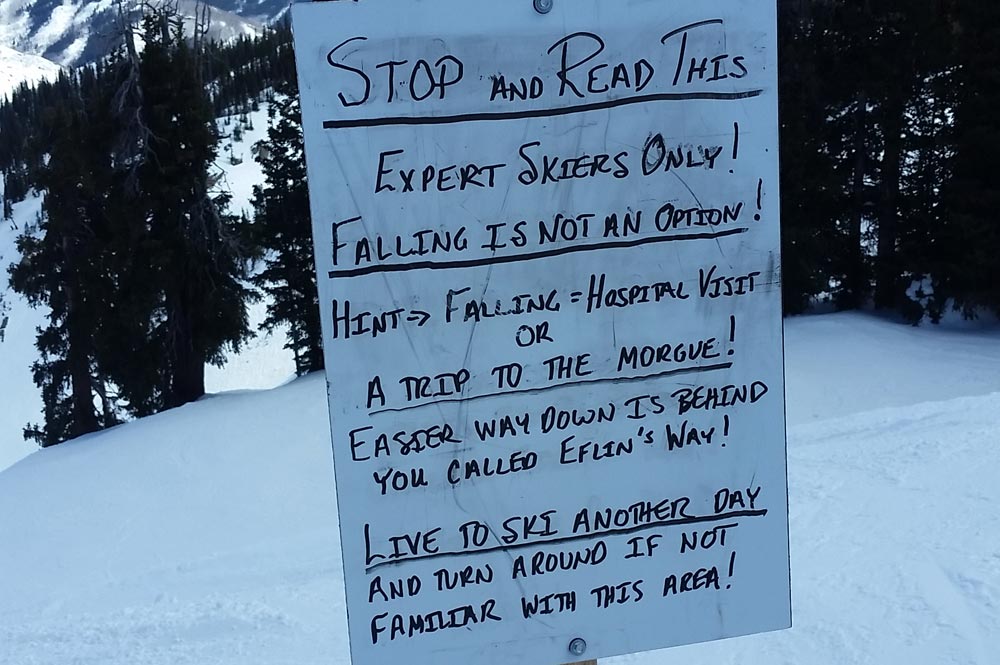 STOP AND READ THIS
EXPERT SKIERS ONLY!
FALLING IS NOT AN OPTION!
HINT⇒ FALLING = HOSPITAL VISIT
OR
A TRIP TO THE MORGUE!
EASIER WAY DOWN IS BEHIND
YOU CALLED EFLIN'S WAY!
LIVE TO SKI ANOTHER DAY
AND TURN AROUND IF NOT
FAMILIAR WITH THIS AREA!